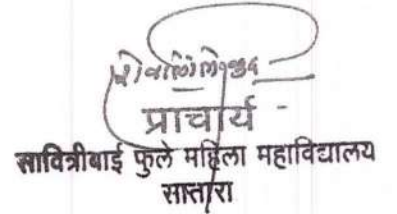 प्राचार्य
सावित्रीबाई फुले महिला महाविद्यालय
सातारा